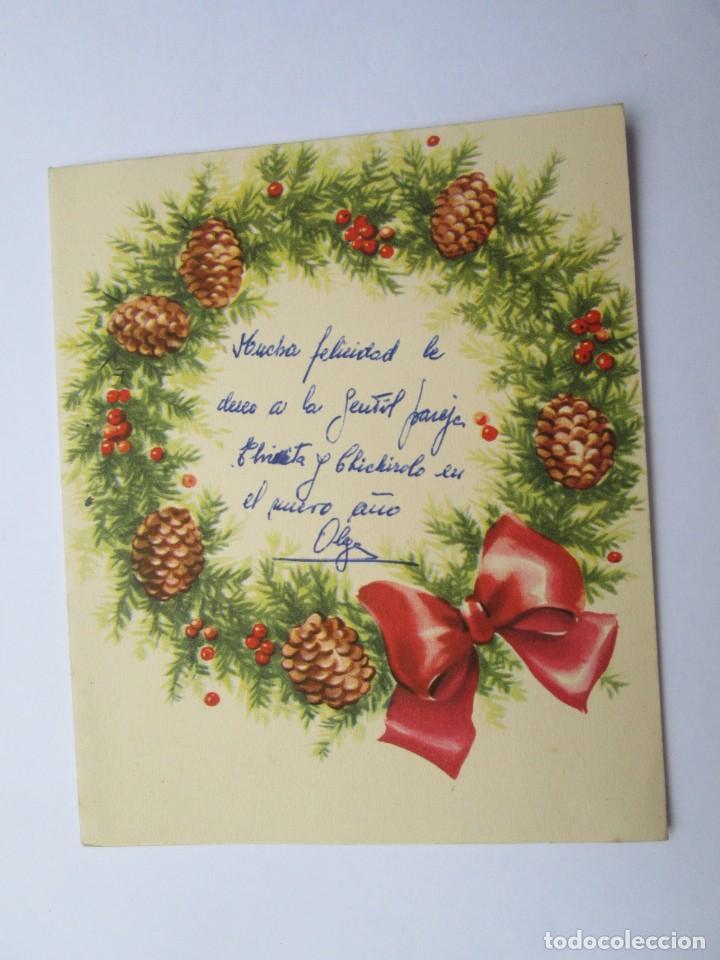 Mucha felicidad le
deseo a la gentil pareja
y Chichirolo en
el nuevo año
Olga
todocoleccion
todocoleccion.net